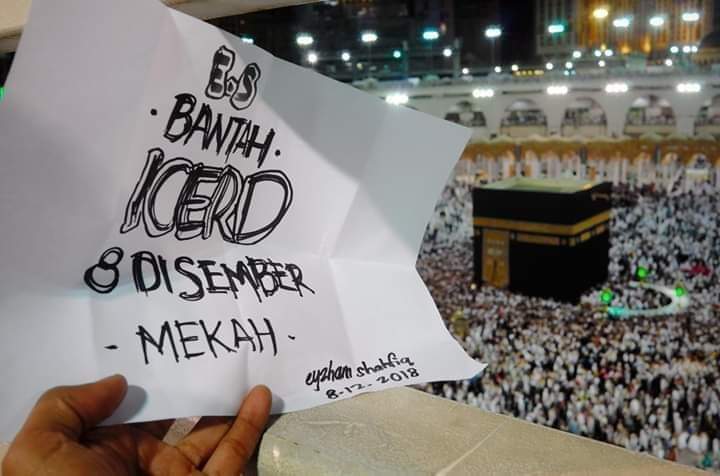 E.S
• BANTAH •
ICERD
8 DISEMBER
- MEKAH -
eyzham shahfiq
8-12-2018